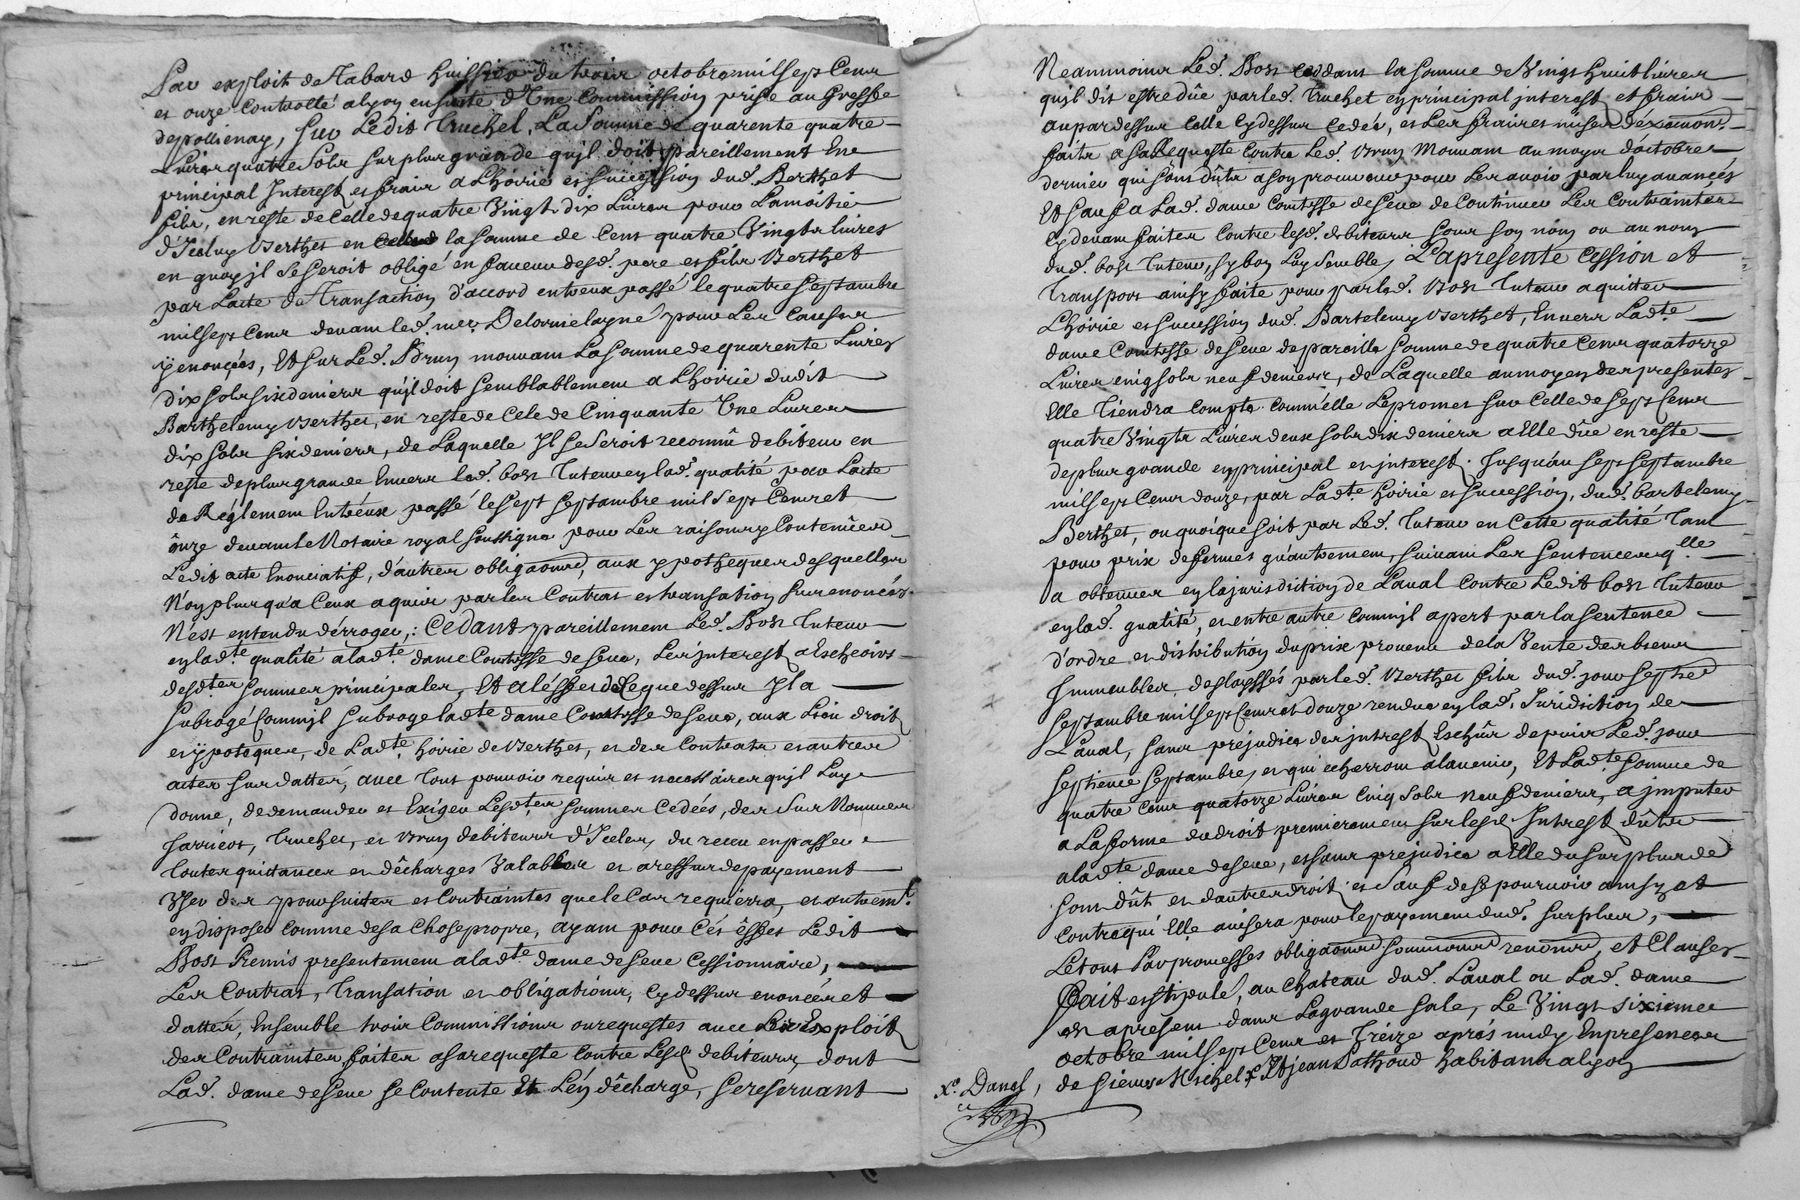 Par exploit de Tabard huissier du trois octobre mil sept Cens
et onze Controllé a lyon ensuite d'Une Commission prise au Greffe
de pollienay, Sur Ledit Truchet, La Somme de quarente quatre
Livres quatre Sols Sur plus grande qujl doit pareillement En
principal Interest et frais a L'hoirie et succession dud. Berthet
fils, en reste de Celle de quatre Vingt dix Livres pour La moitié
d'Iceluy Berthet en la Somme de Cent quatre Vingts livres
en quoy jl Se Seroit obligé en faveur desd. pere et fils Berthet
par L'acte de Transaction d'accord entreux passé le quatre Septambre
mil Sept Cens devant led. mre Delorme layné pour Les Causes
y enoncées, Et Sur Led. Brun mouvant La Somme de quarente Livres
dix Sols six deniers qu'jl doit Semblablement a L'hoirie dudit
Barthelemy Berthet, en reste de Cele de Cinquante Une Livres
dix Sols six deniers, de Laquelle Jl Se Seroit reconnû debiteur en
reste de plus grande Envers led. bost Tuteur en lad. qualité par L'acte
de Réglement Entréux passé le Sept Septambre mil Sept Cens et
ônze devant le Notaire royal Soussigné pour Les raisons y Contenües
Ledit acte Enonciatif, d'autres obligaons, aux ypotheques desquelles
N'on plus qu'a Ceux aquis par les Contrat et transation Sus enoncés
N'est entendu dérroger,: Cedant pareillement Led. Bost Tuteur
en lad.te qualité a lad.te dame Comtesse de Seve, Les jnterest a Escheoirs
desd.tes Sommes principales, Et a l'éffet de Ce que dessus Jl a
Subrogé Comm'jl Subroge lad.te dame Comtesse de Seve, aux Lieu droit
et ypoteques, de Lad.te hoirie de Berthet, et des Contrats et autres
actes Sus dattés, avec Tout pouvoir requis et necessaires qujl Luy
donne, de demander et Exiger Lesd.tes Sommes Cedées, des Sus Nommés
Jarricot, Truchet, et Brun debiteurs d'Jcelles, du receu en passer
Toutes quittances et dêcharges Valables et a reffus de payement
User des poursuites et Contraintes que le Cas requierra, et autremt.
en disposer Comme de sa Chose propre, ayant pour Cés êffet Ledit
Bost Remis presentement a lad.te dame de Seve Cessionnaire,
Les Contrat, Transation et obligations, Cy dessus enoncés et
dattés, Ensemble trois Commissions ou requestes avec Les Exploit
des Contraintes faites a sa requeste Contre Lesd. debiteurs, dont
Lad. dame de Seve Se Contente Et L'én dêcharge, Se reservant
Neammoins Led. Bost Ced dans la Somme de Vingt huit livres
qujl dit estre dûe par led. Truchet en principal jnterest et frais
au par dessus Celle Cy dessus Cedée, et Les fraix et mises
faits a Sa Requeste Contre Led. Brun Mouvant au moys d'octobre
dernier qui sont dûts a son procureur pour Les avoir par luy avancés
Et Sauf a Lad. dame Comtesse de Seve de Continuer Les Contraintes
Cy devant faites Contre lesd. debiteurs Sous Son nom ou au nom
dud. bost Tuteur, sy bon Luy Semble, La presente Cession et
Transport ainsy faite pour par led. Bost Tuteur aquitter
L'hoirie et Succession dud. Bartelemy Berthet, Envers Lad.te
dame Comtesse de Seve de pareille Somme de quatre Cens quatorze
Livres cinq sols neuf deniers, de Laquelle au moyen des presentes
Elle Tiendra Compte Comm'elle Le promet Sur Celle de Sept Cens
quatre Vingts Livres deux Sols dix deniers a Elle Dûe en reste
de plus grande en principal et jnterest Jusqu'au Sept Septambre
mil Sept Cens douze, par Lad.te hoirie et Succession, dud. bartelemy
Berthet, ou quoi que Soit par Led. Tuteur en Cette qualité Tant
pour prix de fermes qu'autrement, Suivant Les Sentences q.lle
a obtenues en la jurisdiction de Laval Contre Ledit bost Tuteur
en lad. qualité, et entre autre Comm'jl apert par la Sentence
d'ordre et distribution du prix provenu de la Vente des biens
Jmmeubles delayssés par led. Berthet fils dud. jour Sept.e
Septambre mil Sept Cens et douze rendue en lad. Juridiction de
Laval, Sans préjudice des jntrest Eschûs depuis Led. jour
Septieme Septambre, et qui echerront a l'avenir, Et Lad.te Somme de
quatre Cens quatorze Livres Cinq Sols Neuf deniers, a jmputer
a La forme du droit premierement Sur lesd. Jntrest dûts
a lad.te dame de Seve, et Sans prejudice a Elle du Surplus de
Son dût et d'autres droit et Sauf de Se pourvoir ainsy et
Contre qui Elle avisera pour le payement dud. Surplus,
Le tout Par promesses obligaons Soumissions renons, et Clauses
Fait et stipulé, au Chateau dud. Laval ou Lad. dame
est a present dans La grande Sale, Le Vingt sixieme
octobre mil Sept Cens et Treize aprés midy En presence
x. Danglo, de Sieurs Michel x Et jean Pathoud habitants a lyon